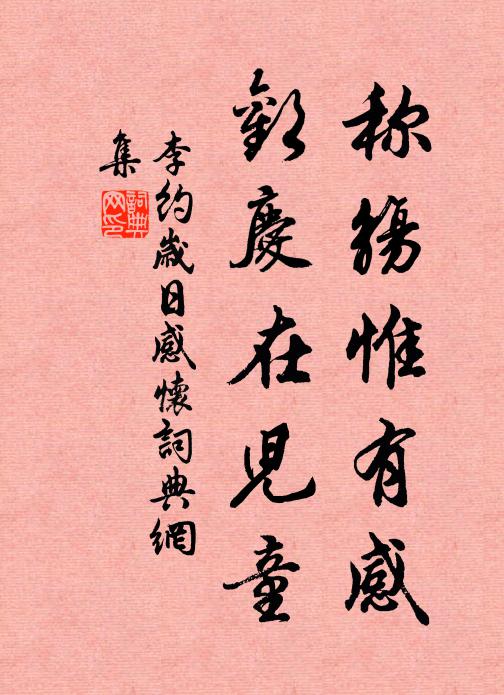 称觞惟有感
歡慶在兒童
李約歲日感懷詞典網
集
詞典
网印